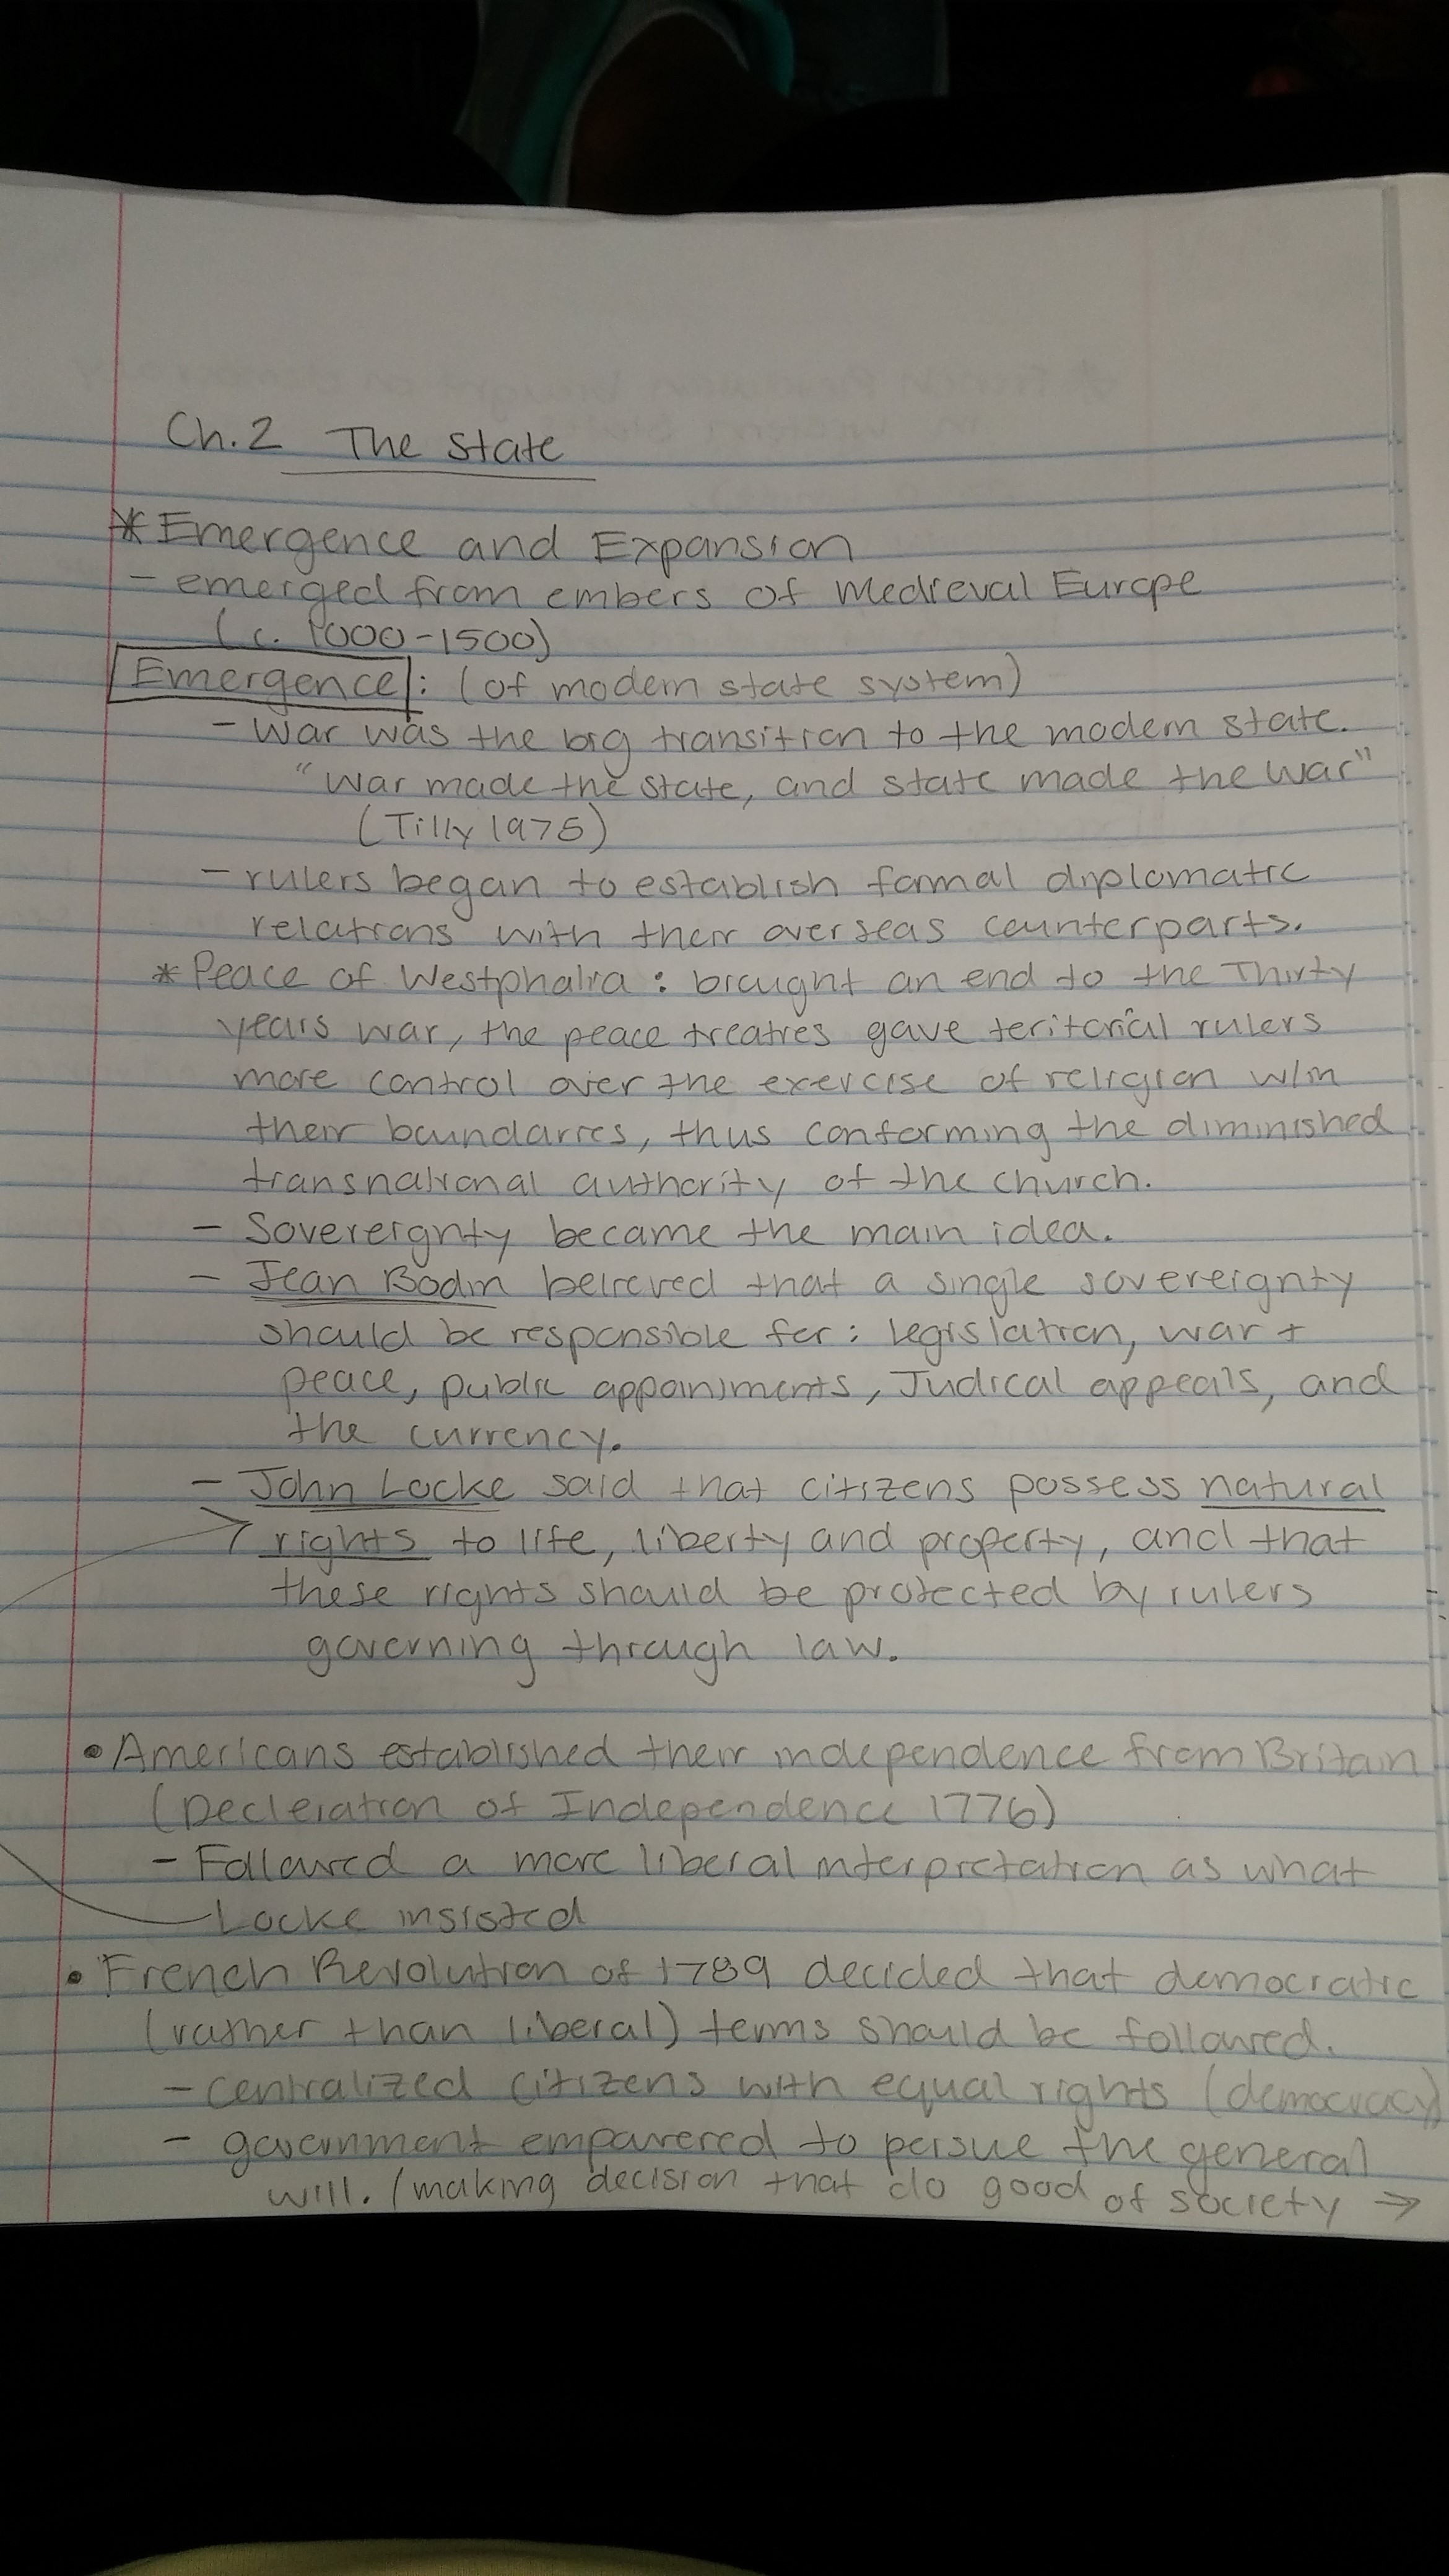 Ch.2 The State
* Emergence and Expansion
- emerged from embers of Medieval Europe
(c. 1000-1500)
Emergence: (of modern state system)
- War was the big transition to the modern state.
"War made the state, and state made the war"
(Tilly 1975)
- rulers began to establish formal diplomatic
relations with their overseas counterparts.
* Peace of Westphalia: brought an end to the Thirty
years war, the peace treaties gave teritorial rulers
more control over the exercise of religion w/in
their boundaries, thus conforming the diminished
transnational authority of the church.
- Sovereignty became the main idea.
- Jean Bodin belreved that a single sovereignty
should be responsible for: legislation, war +
peace, public appointments, Judical appeals, and
the currency.
- John Locke said that citizens possess natural
rights to life, liberty and property, and that
these rights should be protected by rulers
governing through law.
• Americans established their independence from Britain
(Decleration of Independence 1776)
- Followed a more liberal interpretation as what
Locke insisted
• French Revolution of 1789 decided that democratic
(rather than liberal) terms should be followed.
- centralized citizens with equal rights (democracy)
- government empowered to persue the general
will. (making decision that do good of society →